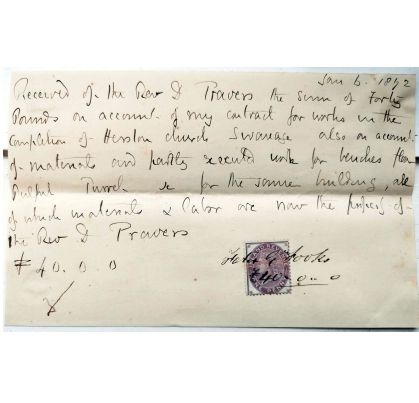 Jan 6. 1872
Received of the Rev D Travers the sum of Forty
Pounds on account of my contract for works in the
completion of Herston church Swanage also on account
of materials and partly executed work for benches floor
Pulpit &c for the same building, all
of which materials & labor are now the property of
the Rev D Travers
£ 40. 0. 0
£40 = 0 = 0